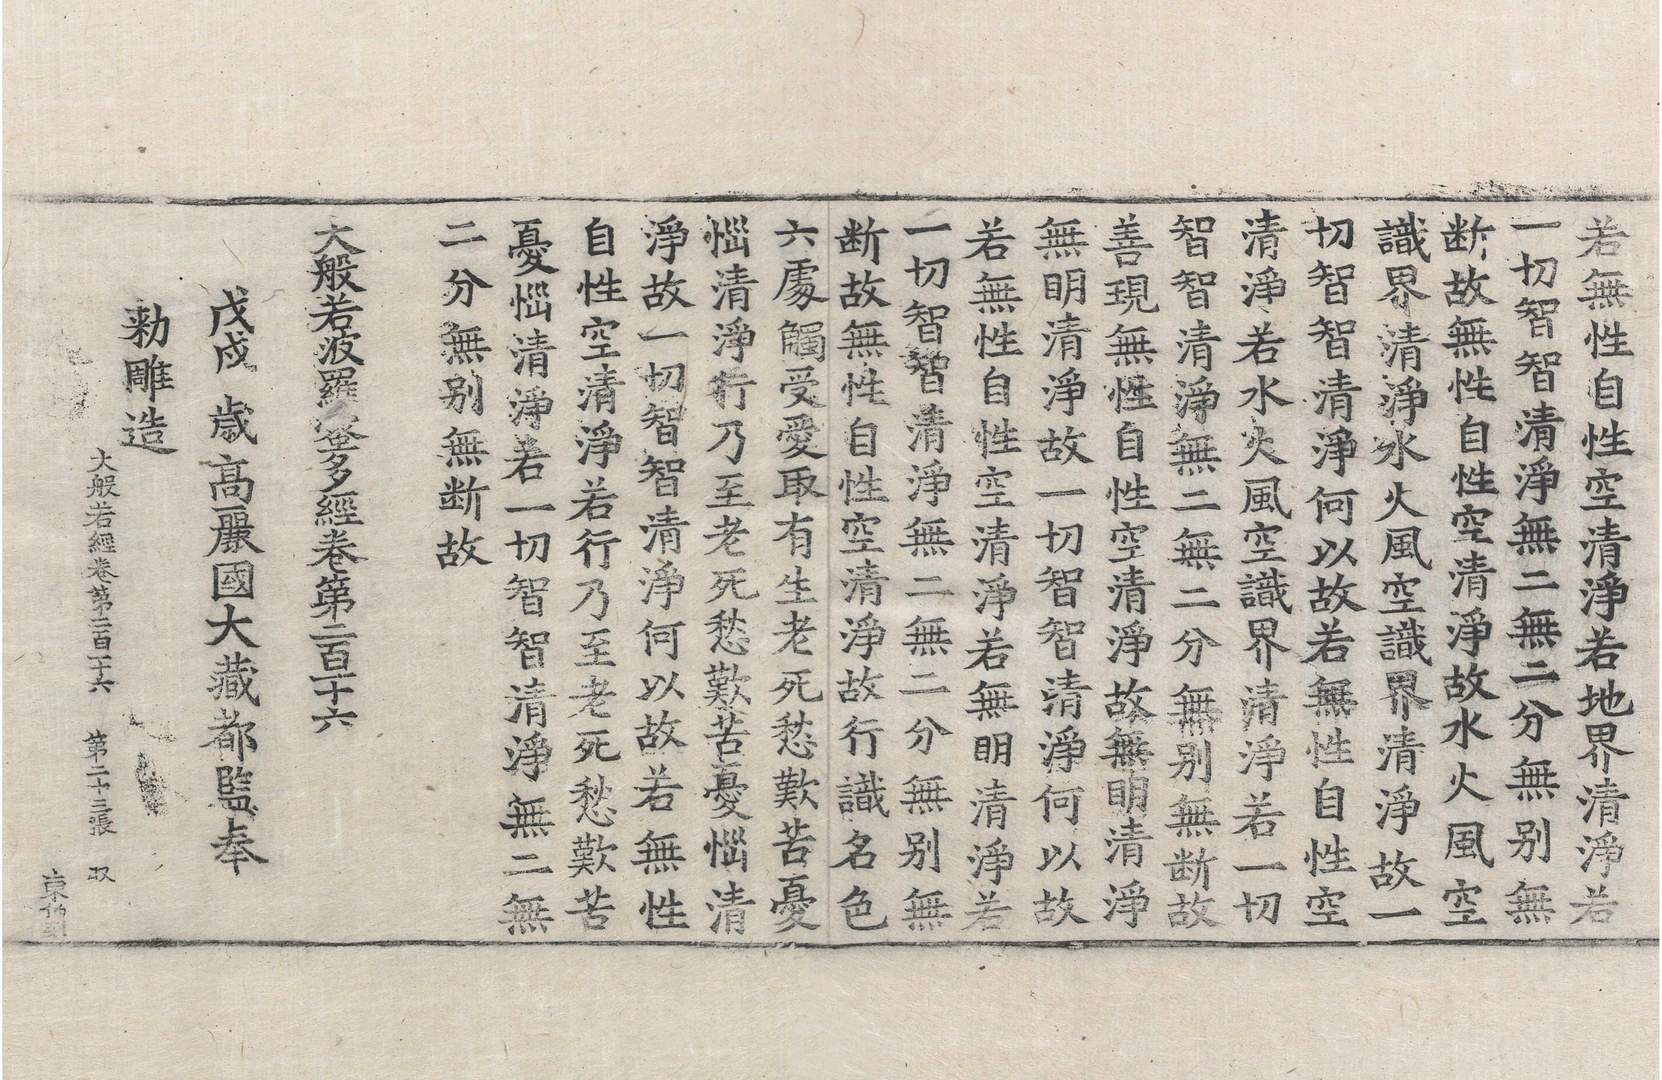 若無性自性空清淨若地界清淨若
一切智智清淨無二無二分無別無
断故無性自性空清淨故水火風空
識界清淨水火風空識界清淨故一
切智智清淨何以故若無性自性空
清淨若水火風空識界清淨若一切
智智清淨無二無二分無別無断故
善現無性自性空清淨故無明清淨
無明清淨故一切智智清淨何以故
若無性自性空清淨若無明清淨若
一切智智清淨無二無二分無別無
断故無性自性空清淨故行識名色
六處觸受愛取有生老死愁歎苦憂
惱清淨行乃至老死愁歎苦憂惱清
淨故一切智智清淨何以故若無性
自性空清淨若行乃至老死愁歎苦
憂惱清淨若一切智智清淨無二無
二分無別無断故
大般若波羅蜜多經卷第二百二十六
戊戌歲高麗國大藏都監奉
勅雕造
大般若經卷第二百二十六 第二十三張